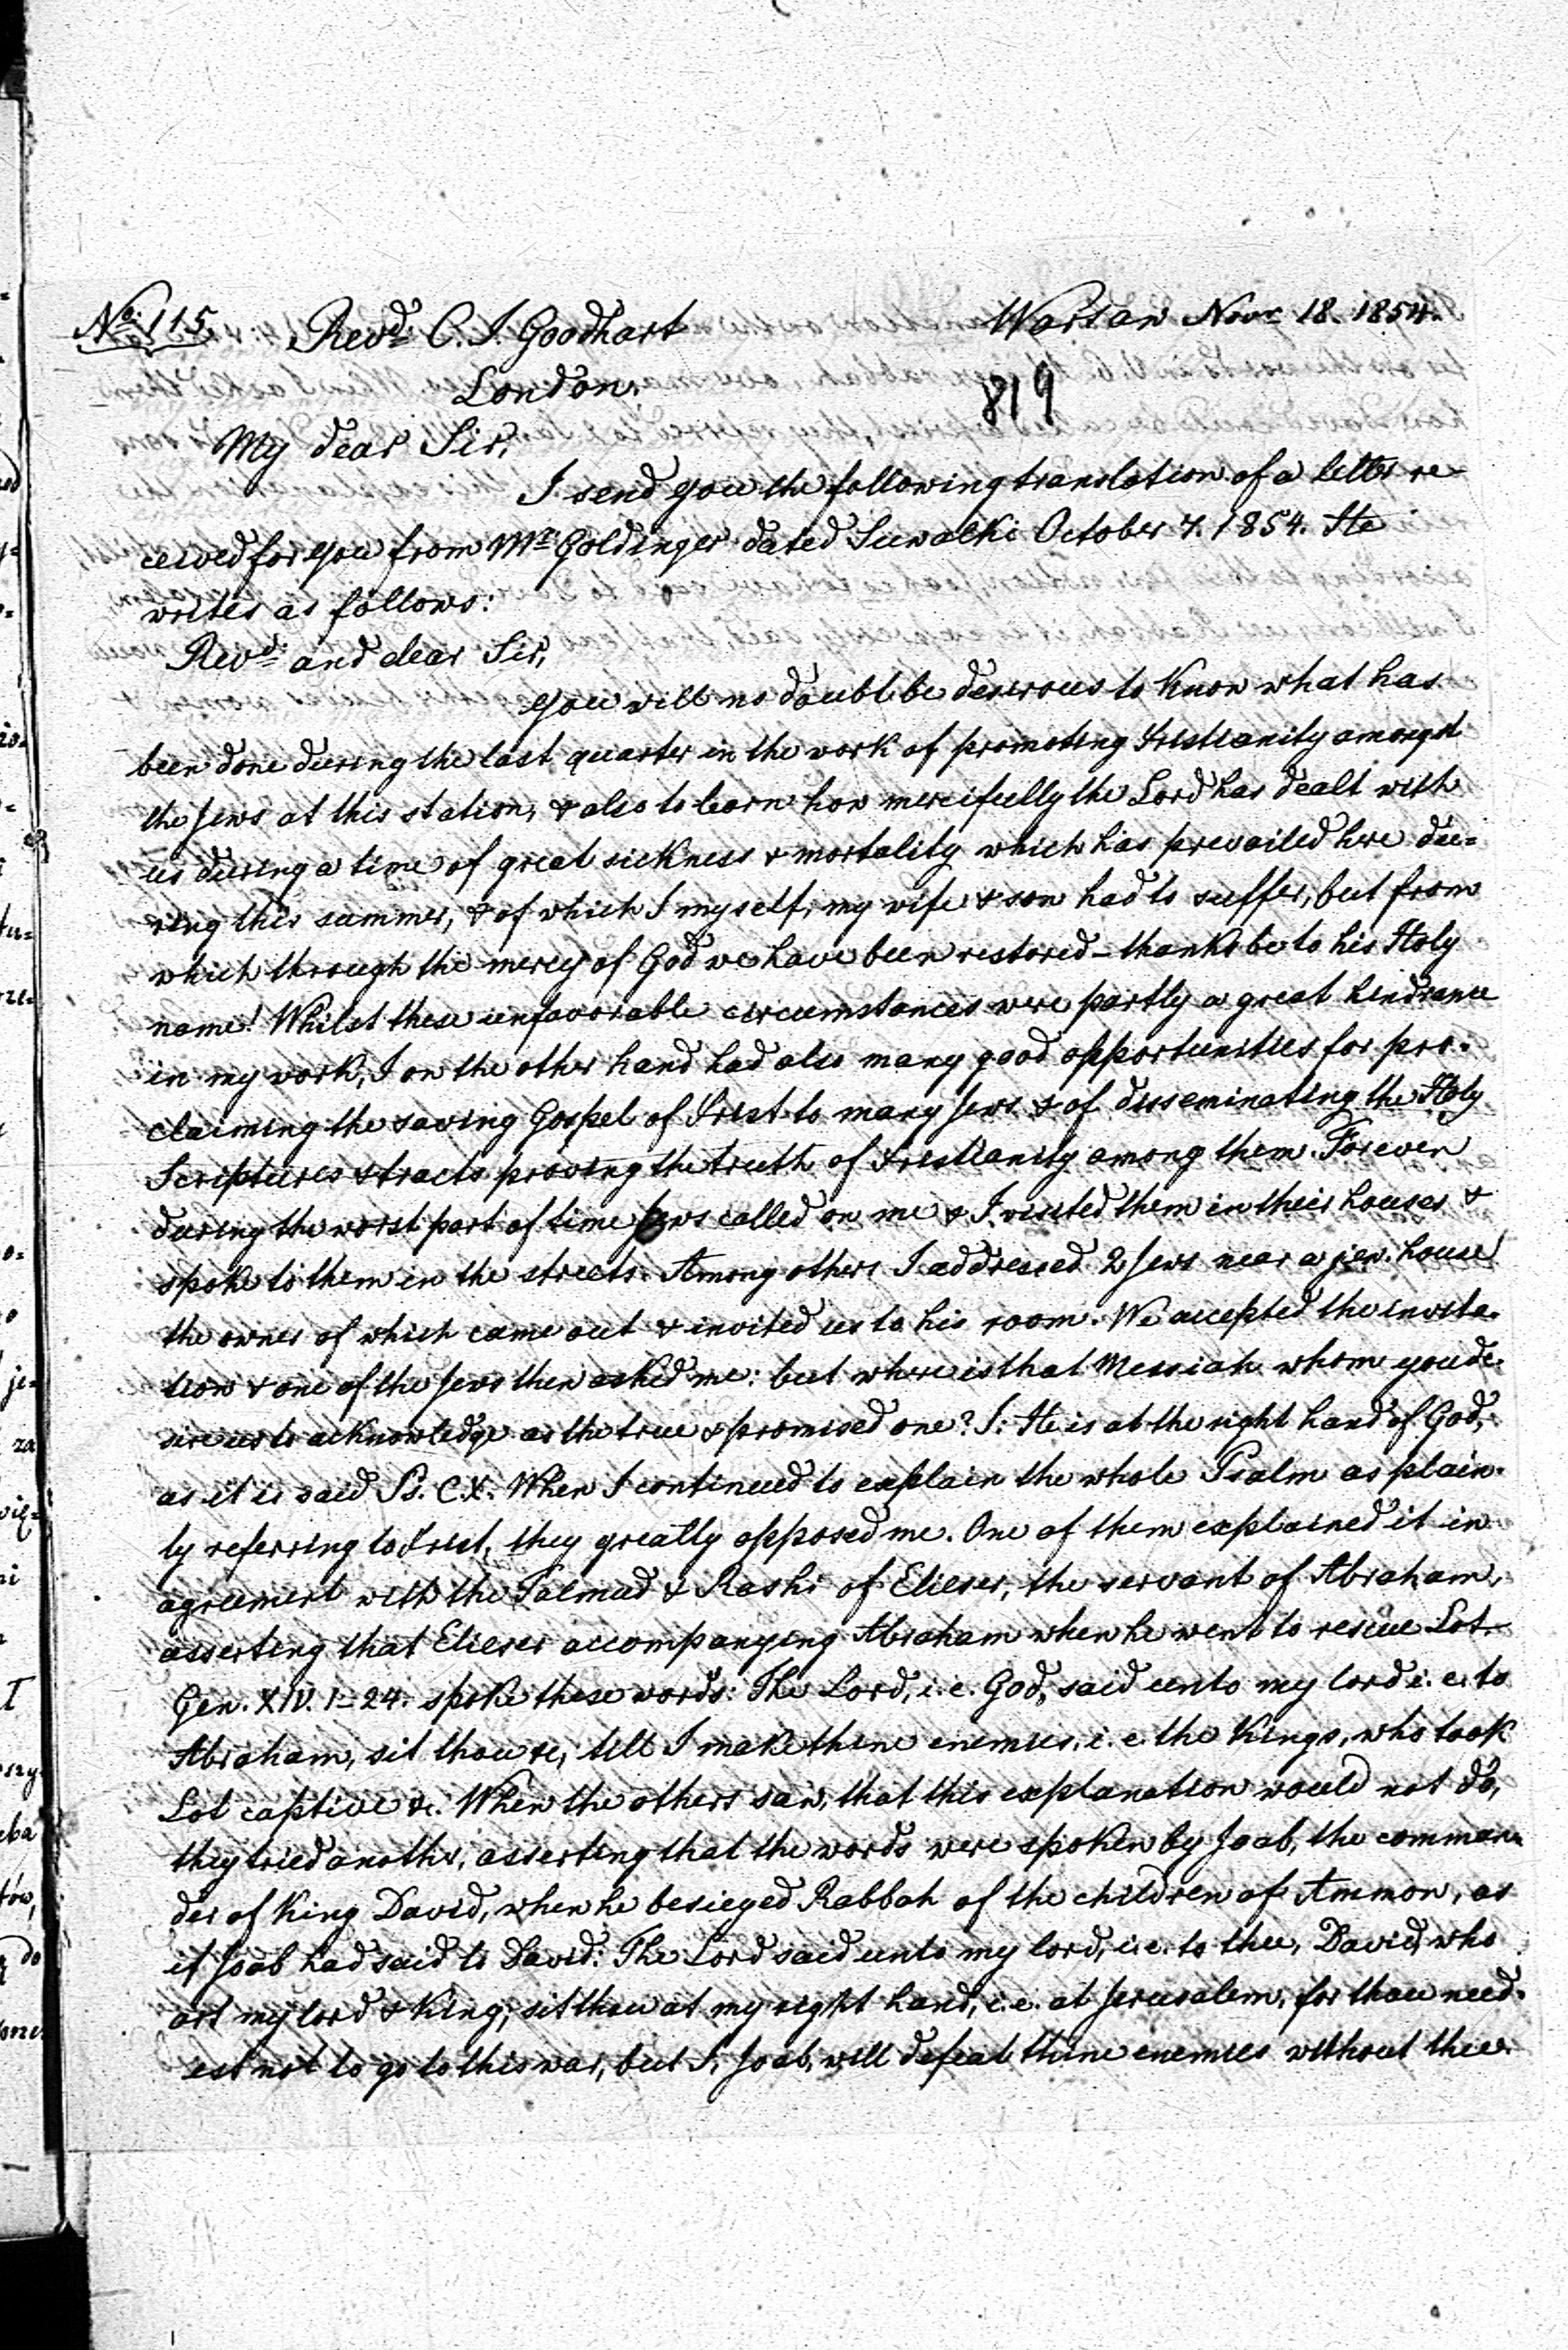 No. 115. Revd. C. J. Goodhart Warsaw Novr. 18. 1854.
London.
819
My dear Sir,
I send you the following translation of a letter re-
ceived for you from Mr. Goldinger dated Suwalki October 7. 1854. He
writes as follows:
Revd. and dear Sir,
You will no doubt be desirous to know what has
been done during the last quarter in the work of promoting Xristianity amongst
the Jews at this station, & also to learn how mercifully the Lord has dealt with
us during a time of great sickness & mortality which has prevailed here du=
ring this summer, & of which I myself, my wife & son had to suffer, but from
which through the mercy of God we have been restored – thanks be to his Holy
name! Whilst these unfavorable circumstances were partly a great hindrance
in my work, I on the other hand had also many good opportunities for pro-
claiming the saving Gospel of Xrist to many Jews & of disseminating the Holy
Scriptures & tracts proving the truth of Xristianity among them. For even
during the worst part of time Jews called on me & I visited them in their houses &
spoke to them in the streets. Among others I addressed 2 Jews near a jew. house
the owner of which came out & invited us to his room. We accepted the invita-
tion & one of the Jews then asked me: but where is that Messiah whom you de-
sire us to acknowledge as the true & promised one? I: He is at the right hand of God,
as it is said Ps. C.X. When I continued to explain the whole Psalm as plain-
ly referring to Xrist, they greatly opposed me. One of them explained it in
agreement with the Talmud & Rashi of Elieser, the servant of Abraham,
asserting that Elieser accompanying Abraham when he went to rescue Lot
Gen. XIV. 1–24. spoke these words: The Lord, i.e. God, said unto my lord i.e. to
Abraham, sit thou &c, till I make thine enemies, i.e. the Kings, who took
Lot captive &c. When the others saw, that this explanation would not do,
they tried another, asserting that the words were spoken by Joab, the comman-
der of King David, when he besieged Rabbah of the children of Ammon, as
if Joab had said to David: The Lord said unto my lord, i.e. to thee, David, who
art my lord & King, sit thou at my right hand, i.e. at Jerusalem, for thou need-
est not to go to this war, but I, Joab, will defeat thine enemies without thee.